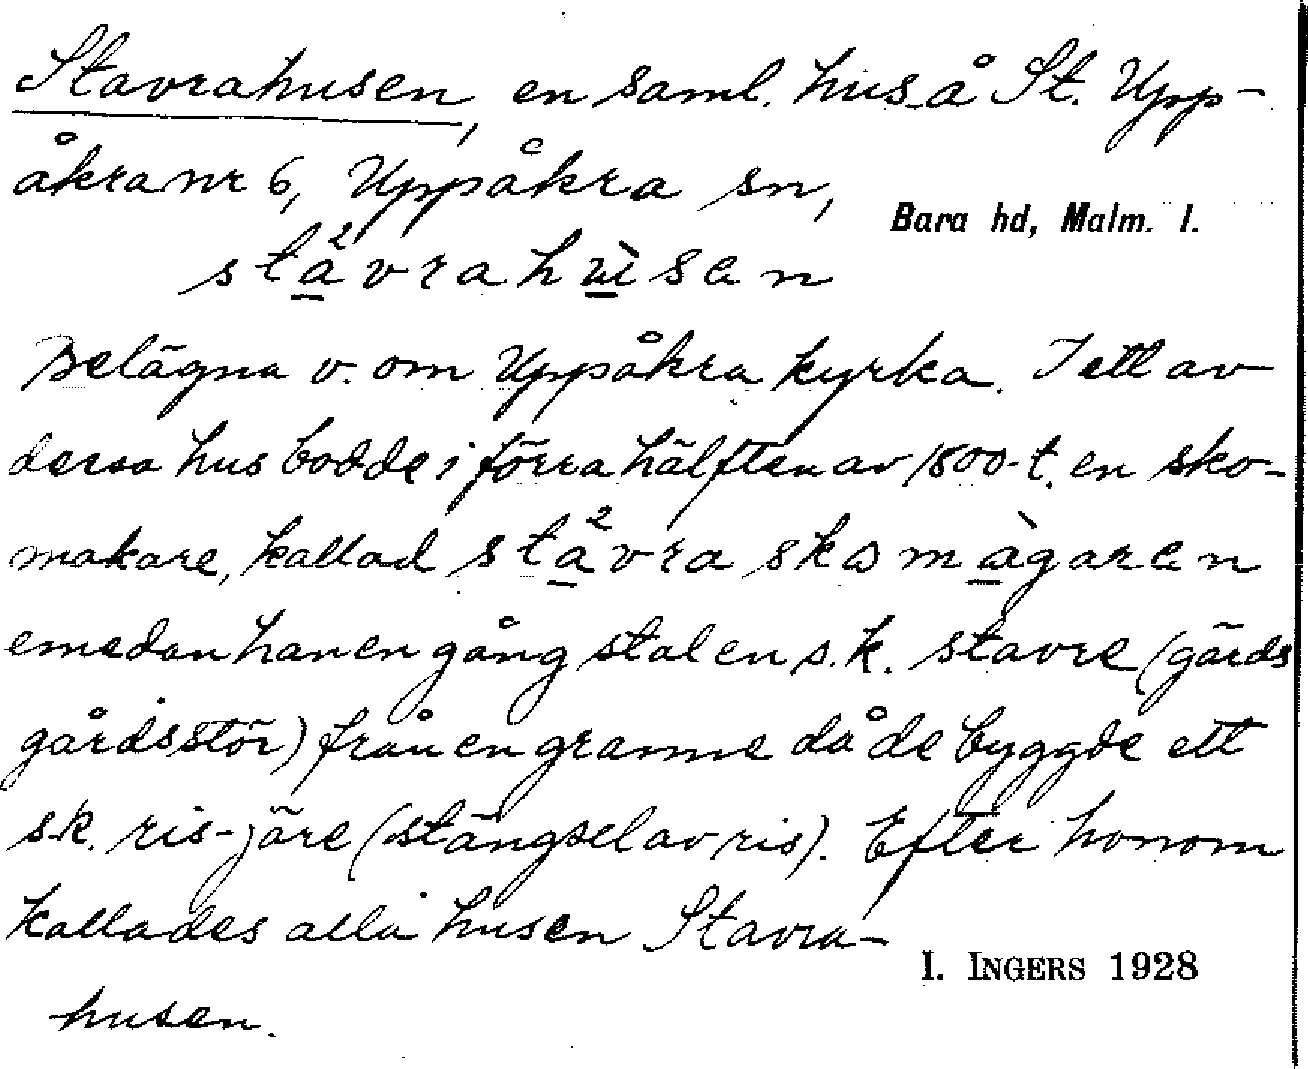 Stavrahusen, en saml. hus å St. Upp-
åkra nr 6, Uppåkra sn,
Bara hd, Malm. l.
sta²vrahùsen
Belägna v. om Uppåkra kyrka. I ett av
dessa hus bodde i förra hälften av 1800-t. en sko-
makare, kallad sta²vra skomàgaren
emedan han en gång stal en s.k. stavre (gärds
gårdsstör) från en granne då de byggde ett
s.k. ris-järe (stängsel av ris). Efter honom
kallades alla husen Stavra-
husen.
I. INGERS 1928